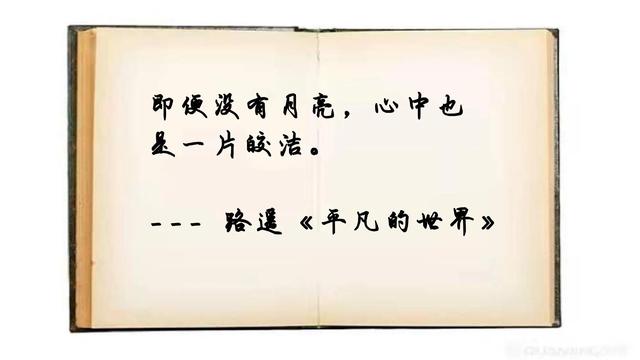 即便没有月亮，心中也
是一片皎洁。
--- 路遥《平凡的世界》